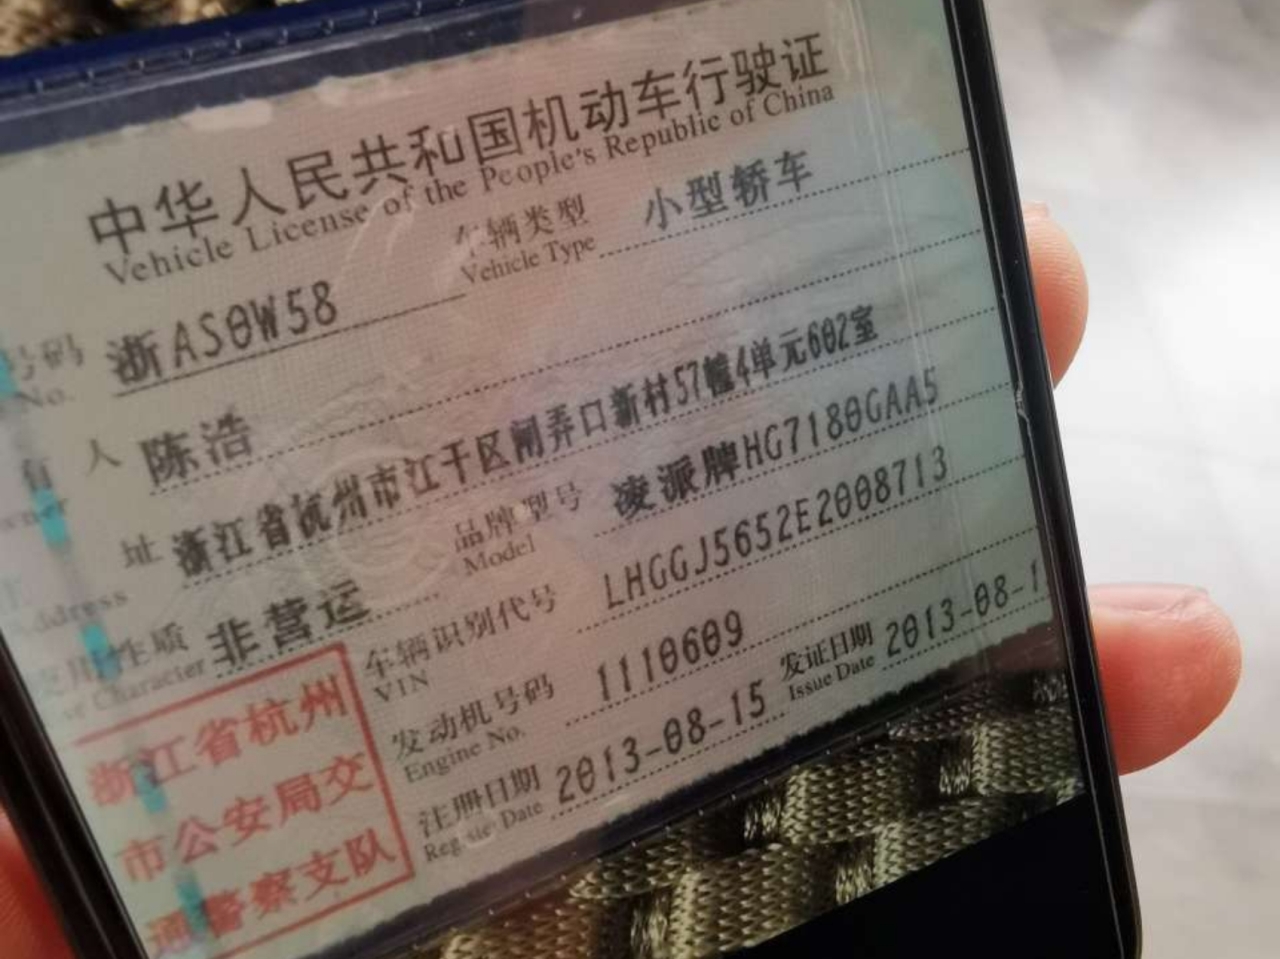 中华人民共和国机动车行驶证
Vehicle License of the People's Republic of China
号码 浙AS0W58 车辆类型 小型轿车
No. Vehicle Type
人 陈浩
址 浙江省杭州市江干区闸弄口新村57幢4单元602室
Address
性质 非营运 品牌型号 凌派牌HG7180GAA5
Character Model
车辆识别代号 LHGGJ5652E2008713
VIN
发动机号码 1110609
Engine No.
注册日期 2013-08-15 发证日期 2013-08-1
Register Date Issue Date
浙江省杭州
市公安局交
通警察支队